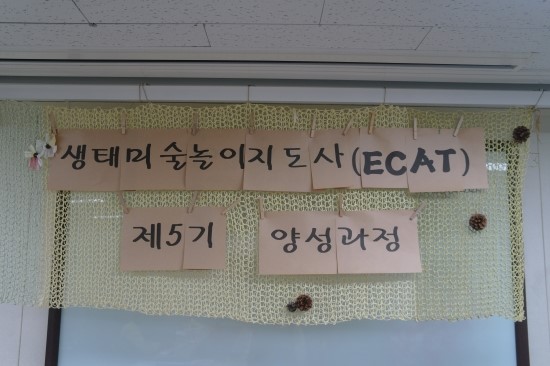 생태미술놀이지도사(ECAT)
제5기 양성과정